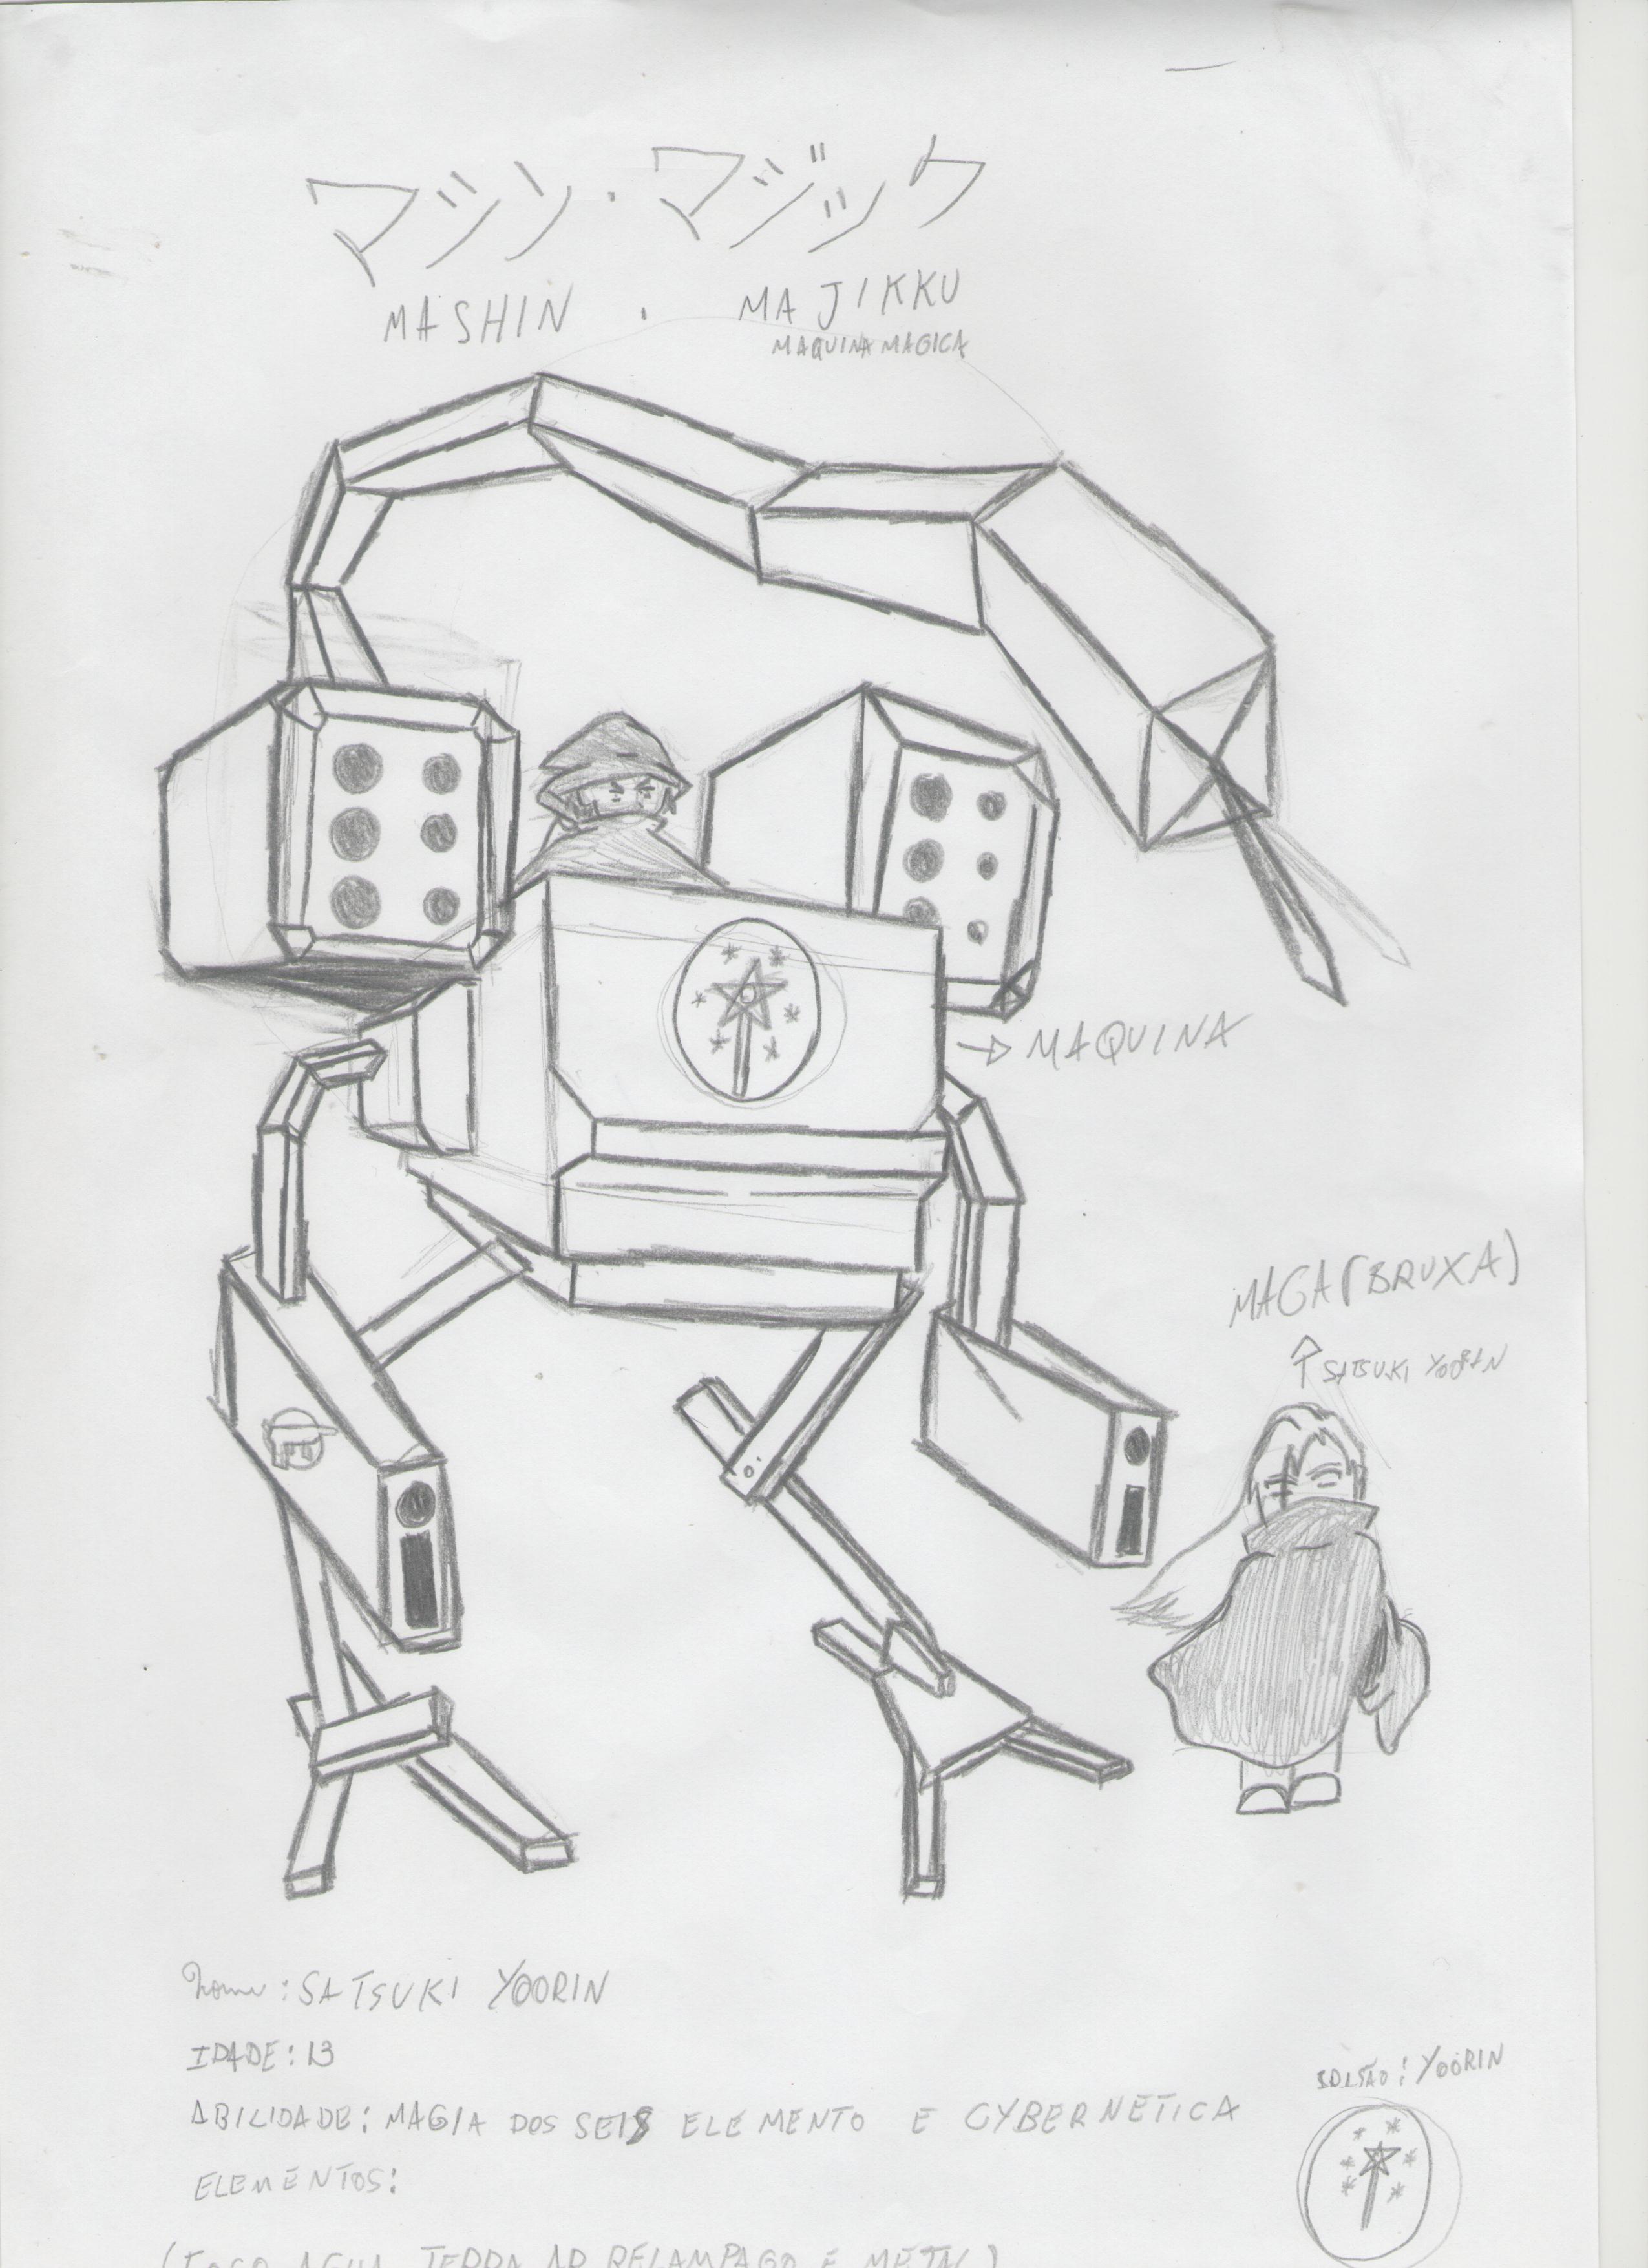 マシン・マジック
MASHIN . MAJIKKU
MAQUINA MAGICA
MAQUINA
MAGA(BRUXA)
SATSUKI
Nome: SATSUKI YOORIN
IDADE: 13
ABILIDADE: MAGIA DOS SEIS ELEMENTO E CYBERNETICA
ELEMENTOS:
(FOGO AGUA TERRA AR RELAMPAGO E METAL)
YOORIN